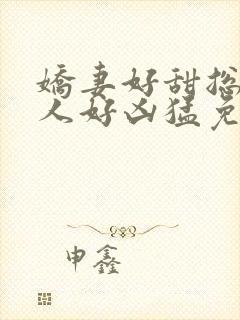 嬌妻好甜
人好凶猛免
申鑫